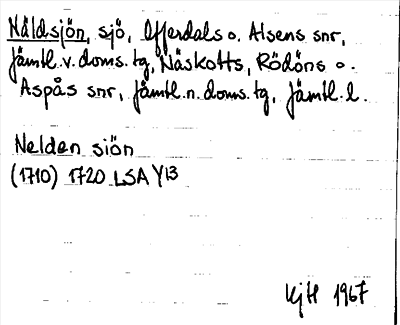 Näldsjön, sjö, Offerdals o. Alsens snr,
Jämtl. v. doms. tg, Näskotts, Rödöns o.
Aspås snr, Jämtl. n. doms. tg, Jämtl. l.
Nelden siön
(1710) 1720 LSA Y13
KjH 1967